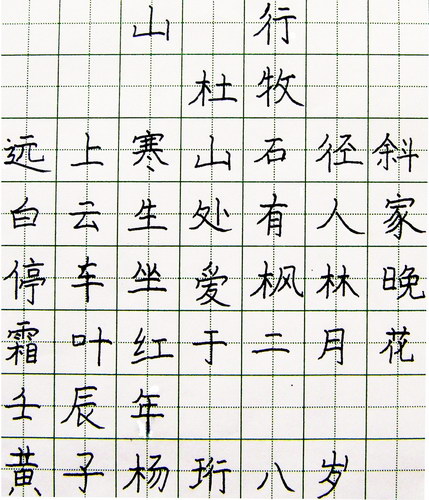 山行
杜牧
远上寒山石径斜
白云生处有人家
停车坐爱枫林晚
霜叶红于二月花
壬辰年
黄子杨珩八岁